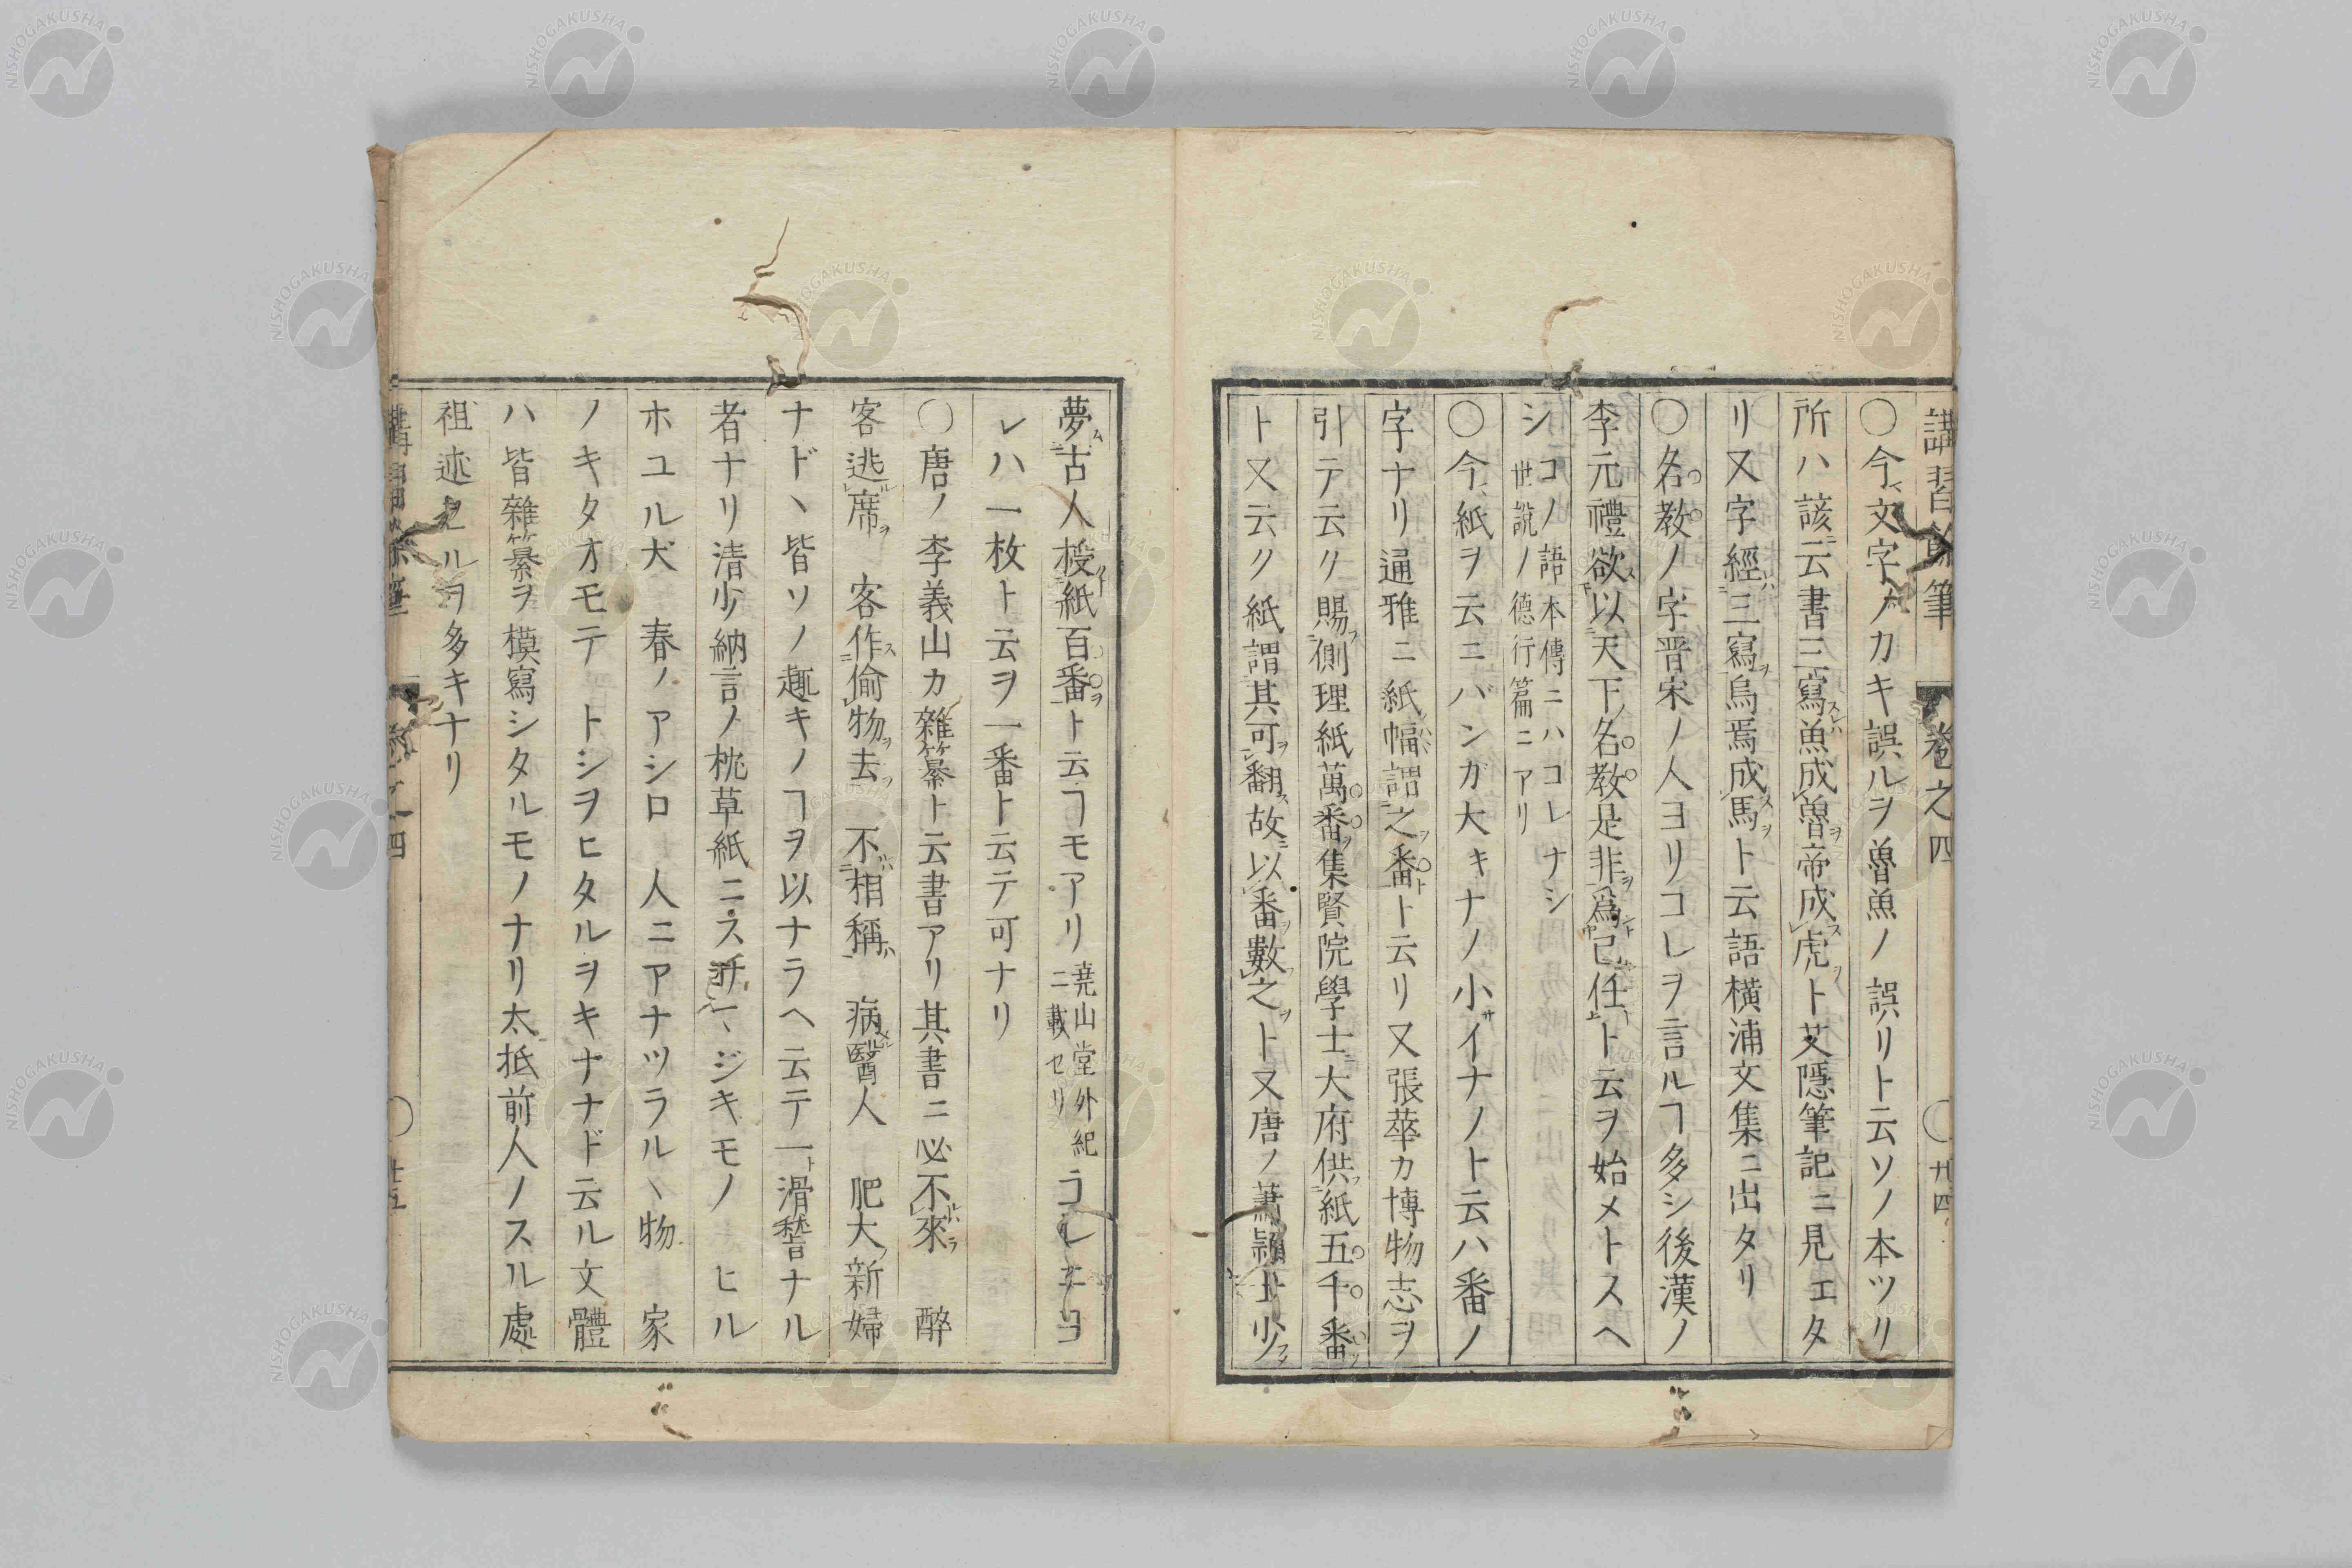 講習餘筆 卷之四 〇 廿四
〇今文字ノカキ誤ルヲ魯魚ノ誤リト云ソノ本ツリ
所ハ諺云書三寫魚成魯帝成虎ト艾隱筆記ニ見エタ
リ又字經三寫烏焉成馬ト云語橫浦文集ニ出タリ
〇名教ノ字晋宋ノ人ヨリコレヲ言ルヿ多シ後漢ノ
李元禮欲以天下名教是非爲己任ト云ヲ始メトスヘ
シコノ語本傳ニハコレナシ
世說ノ德行篇ニアリ
〇今紙ヲ云ニバンガ大キナノ小サイナノト云ハ番ノ
字ナリ通雅ニ紙幅謂之番ト云リ又張華カ博物志ヲ
引テ云ク賜側理紙萬番集賢院學士大府供紙五千番
ト又云ク紙謂其可翻故以番數之ト又唐ノ蕭穎士少
夢古人授紙百番ト云ヿモアリ堯山堂外紀
ニ載セリコレニヨ
レハ一枚ト云ヲ一番ト云テ可ナリ
〇唐ノ李義山カ雜纂ト云書アリ其書ニ必不來 醉
客逃席 客作偷物去 不相稱 病醫人 肥大新婦
ナド丶皆ソノ趣キノヿヲ以ナラヘ云テ一ト滑稽ナル
者ナリ清少納言ノ枕草紙ニスサマジキモノ ヒル
ホユル犬 春ノアシロ 人ニアナツラル丶物 家
ノキタオモテ トシヲヒタルヲキナナド云ル文體
ハ皆雜纂ヲ模寫シタルモノナリ太抵前人ノスル處
祖述セルヲ多キナリ
卷之四 〇 廿五
NISHOGAKUSHA